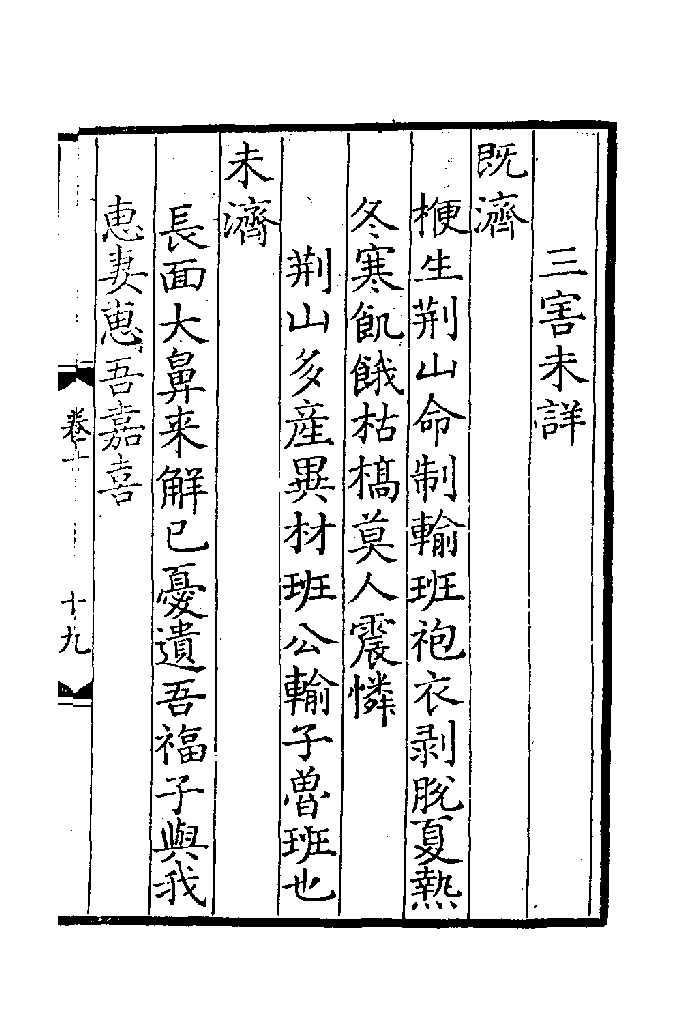 三害未詳
既濟
梗生荆山命制輸班袍衣剥脫夏熱
冬寒飢餓枯槁莫人震憐
荆山多產異材班公輸子魯班也
未濟
長面大鼻来解已憂遺吾福子與我
恵妻恵吾嘉喜
卷十
十九